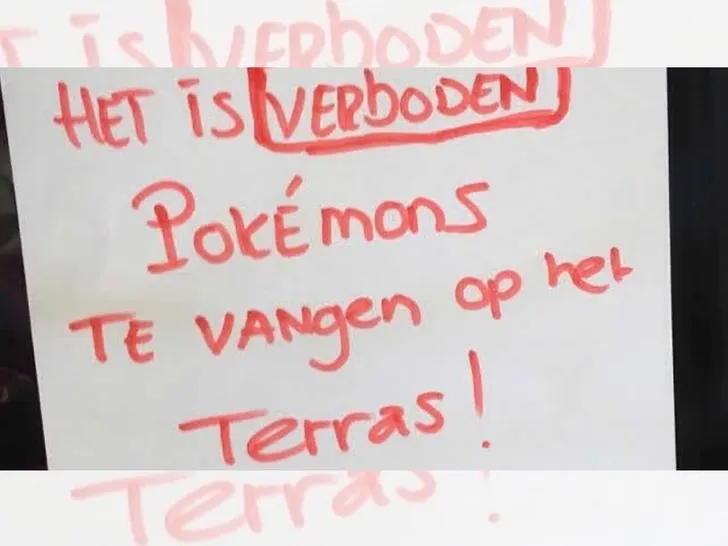 HET is VERBODEN
POKÉmons
TE VANgen op het
Terras!